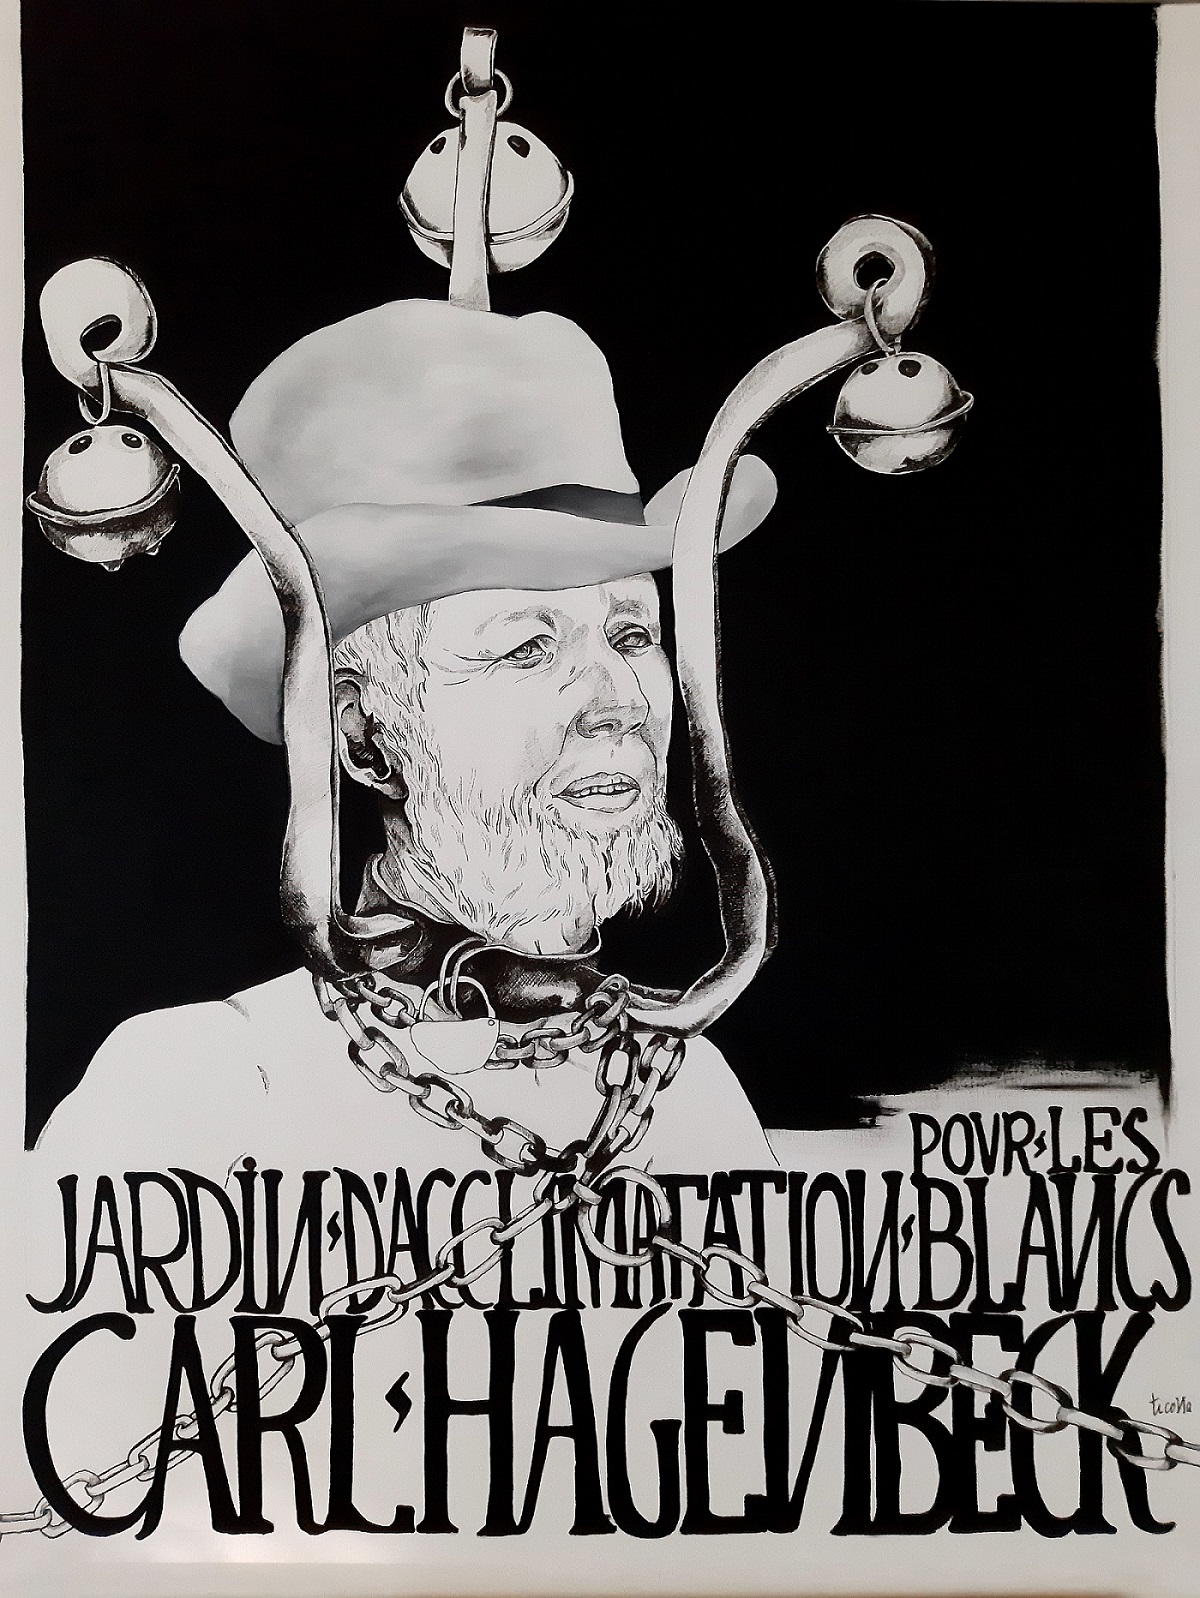 POVR·LES
JARDiN·D'ACCLIMATATION·BLANCS
CARL·HAGENBECK
ticona